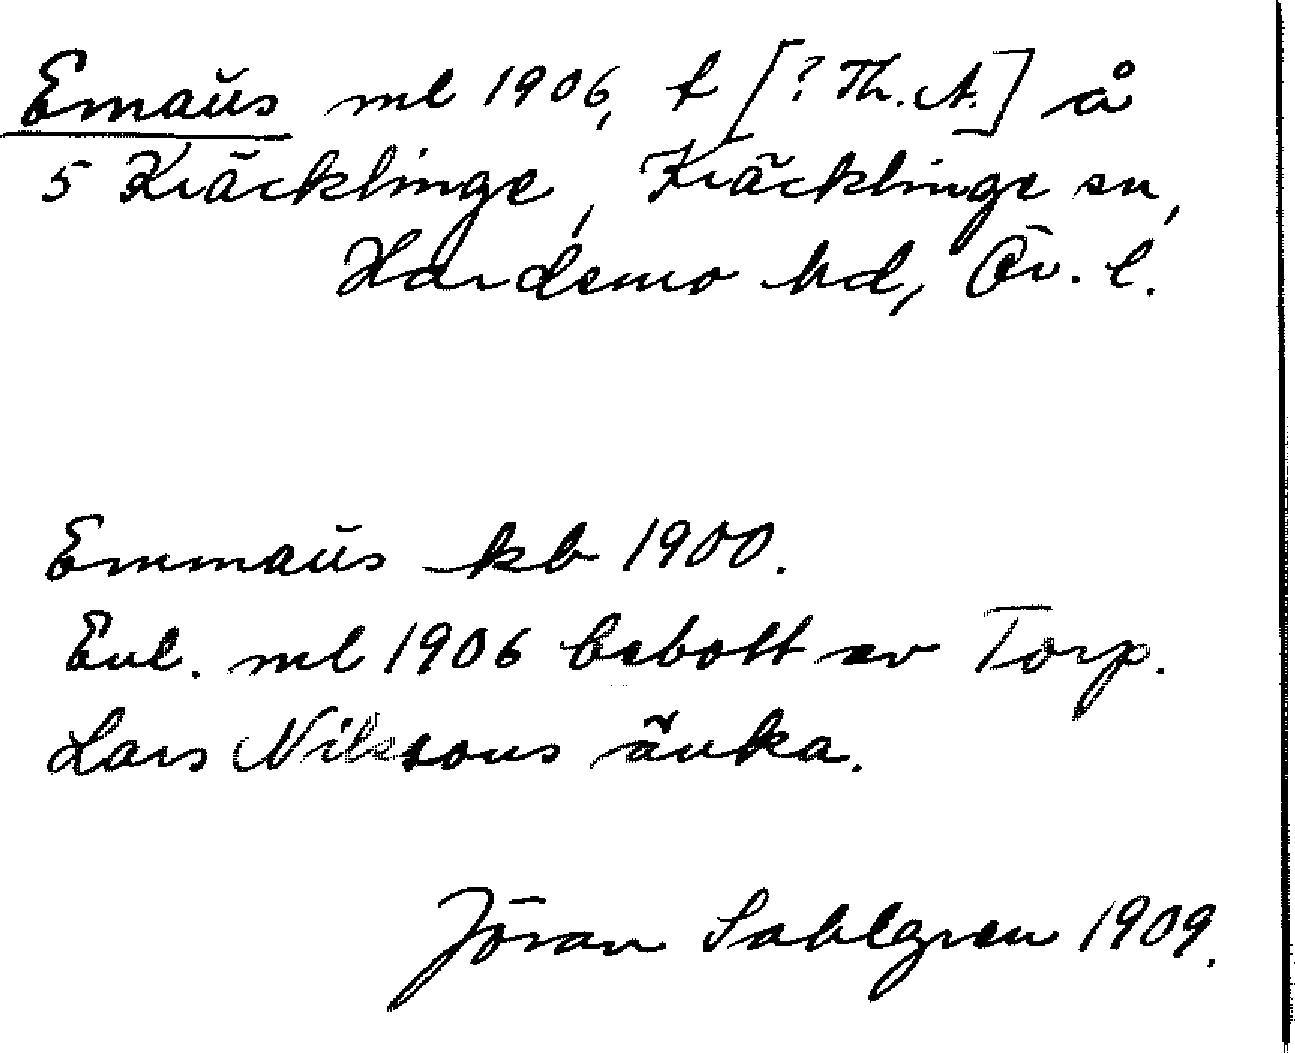 Emaus ml 1906, t [? Th. A.] å
5 Kräcklinge, Kräcklinge sn,
Hardemo hd, Ör. l.
Emmaus kb 1900.
Enl. ml 1906 bebott av Torp.
Lars Nilssons änka.
Jöran Sahlgren 1909.